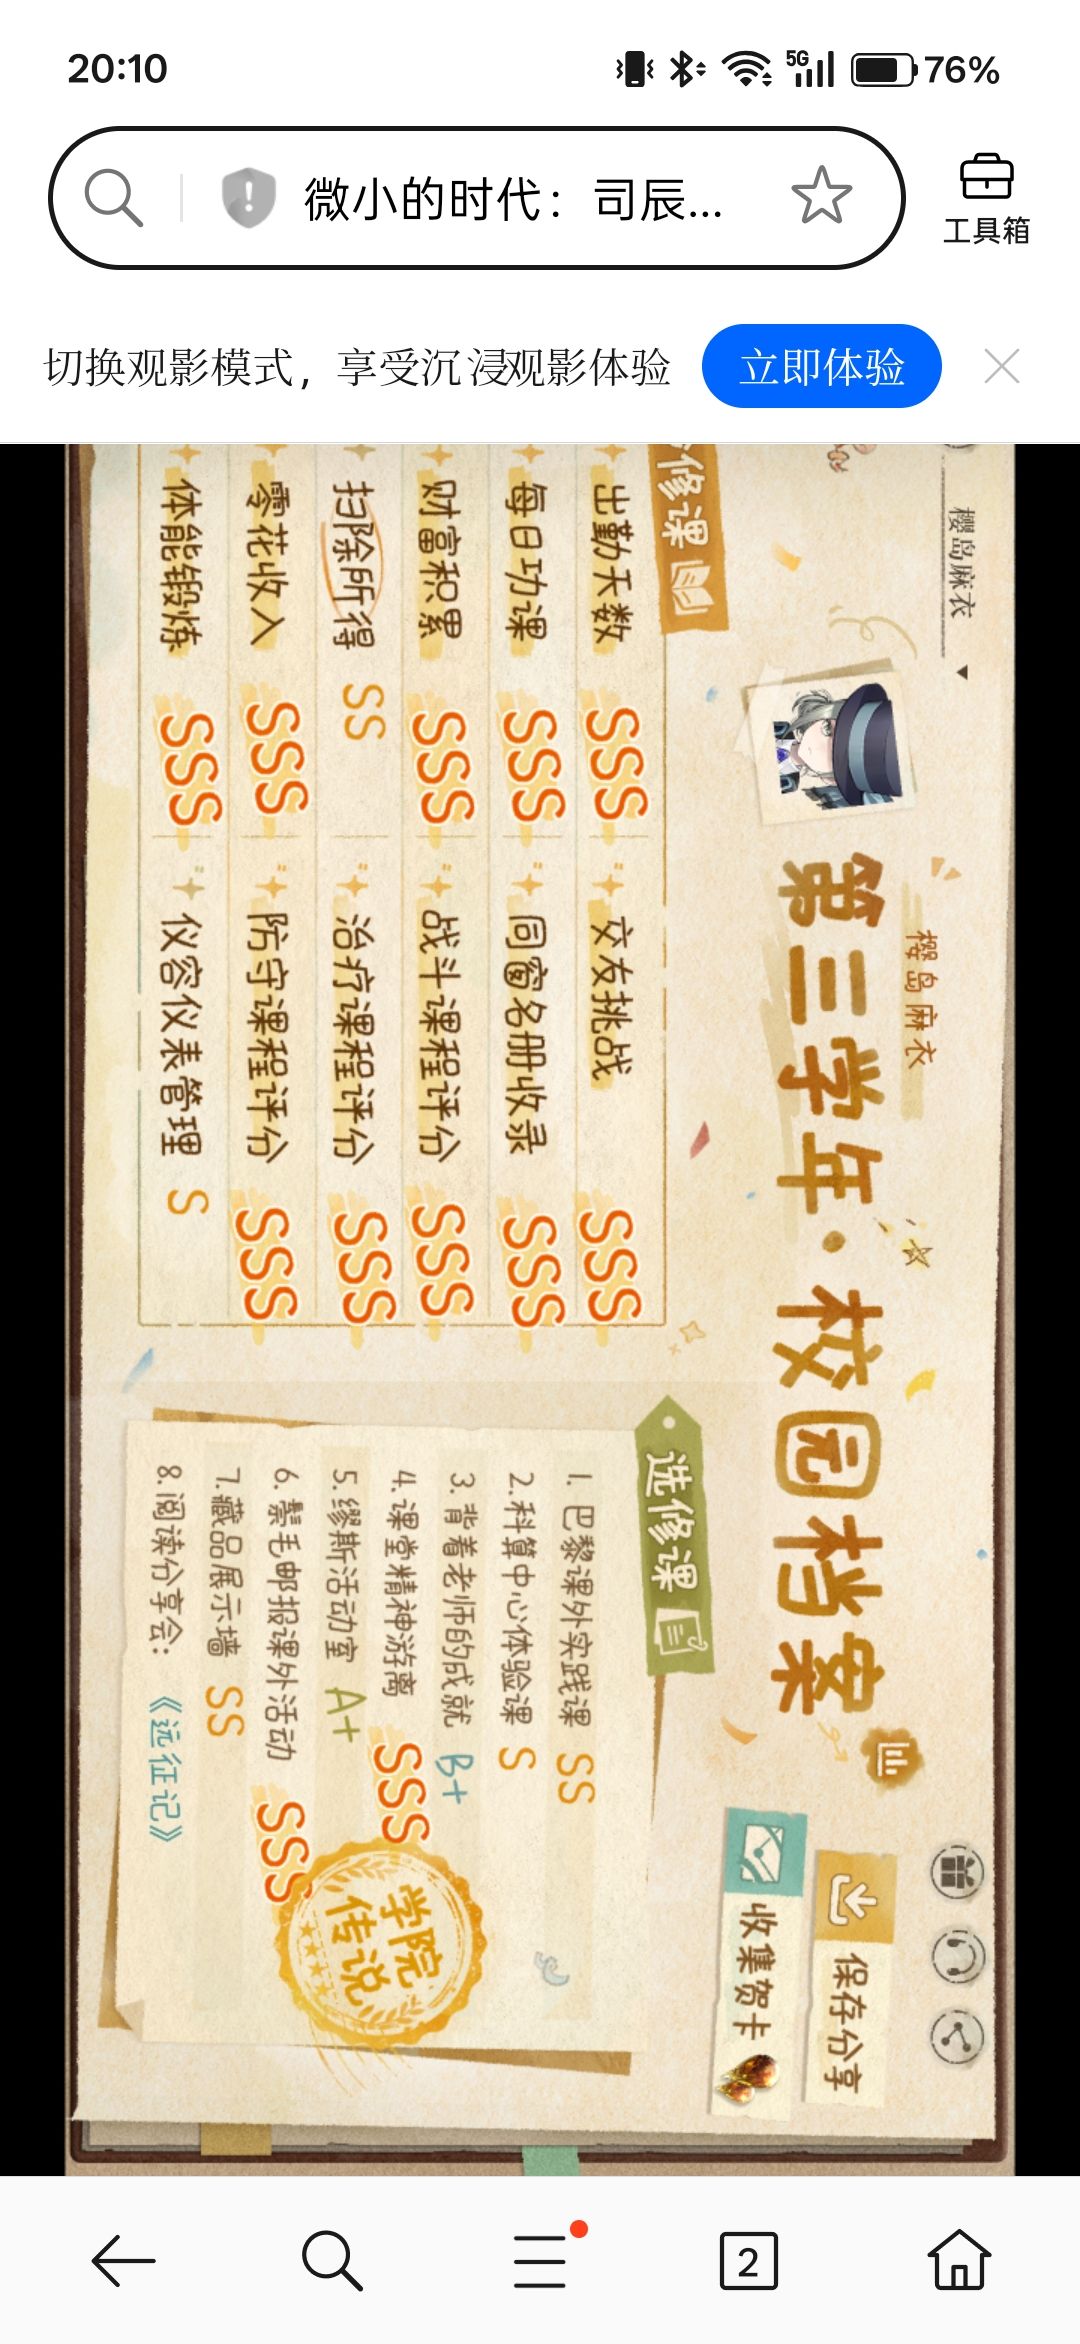 20:10
5G
76%
微小的时代：司辰...
工具箱
切换观影模式，享受沉浸观影体验
立即体验
樱岛麻衣
樱岛麻衣
第三学年·校园档案
保存分享
收集贺卡
修课
出勤天数 SSS
交友挑战 SSS
每日功课 SSS
同窗名册收录 SSS
财富积累 SSS
战斗课程评分 SSS
扫除所得 SS
治疗课程评分 SSS
零花收入 SSS
防守课程评分 SSS
体能锻炼 SSS
仪容仪表管理 S
选修课
1. 巴黎课外实践课 SS
2.科算中心体验课 S
3.背着老师的成就 B+
4.课堂精神游离 SSS
5.缪斯活动室 A+
6.鬃毛邮报课外活动 SSS
7.藏品展示墙 SS
8.阅读分享会：《远征记》
学院
传说
2